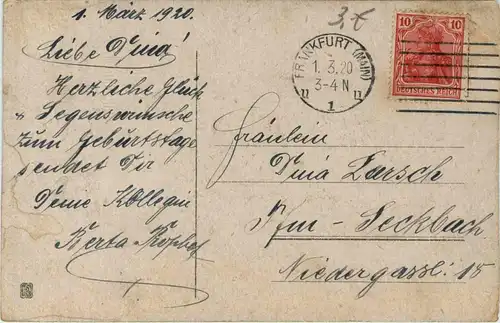 1. März 1920.
3,€
Liebe Tina!
Herzliche Glück
u Segenswünsche
zum Geburtstage
sendet Dir
Deine Kollegin
Berta
FRANKFURT (MAIN)
1.3.20
3-4 N
n 1 n
10 10
DEUTSCHES REICH
Fräulein
Tina Lersch
Ffm-Seckbach
Niedergasse 15